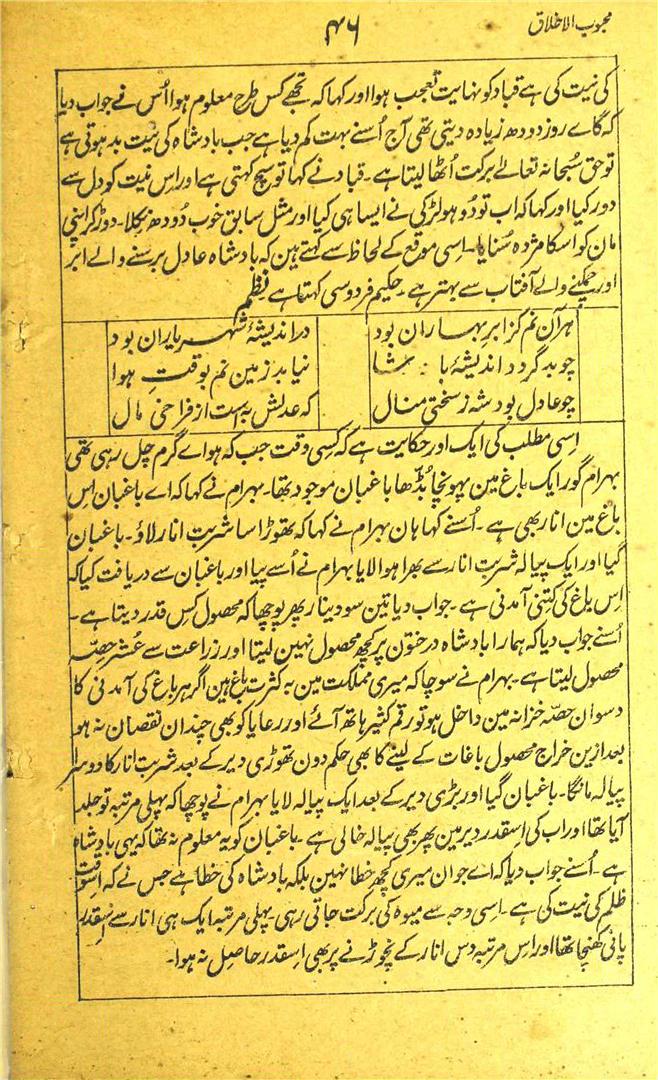 محبوب الاخلاق
۴۶
کی نیت کی ہے قباد کو نہایت تعجب ہوا اور کہا کہ تجھے کس طرح معلوم ہوا اُس نے جواب دیا
کہ گاے روز دودھ زیادہ دیتی تھی آج اُسنے بہت کم دیا ہے جب بادشاہ کی نیت بد ہوتی ہے
تو حق سُبحانہ تعالےٰ برکت اُٹھا لیتا ہے۔ قباد نے کہا تو سچ کہتی ہے اور اِس نیت کو دل سے
دور کیا اور کہا کہ اب تو دُوہو لڑکی نے ایسا ہی کیا اور مثل سابق خوب دودھ نکلا۔ دوڑ کر اپنی
مان کو اسکا مژدہ سُنایا۔ اِسی موقع کے لحاظ سے کہتے ہین کہ بادشاہ عادل برسنے والے ابر
اور چمکنے والے آفتاب سے بہتر ہے۔ حکیم فردوسی کہتا ہے نظم
ہر آن نم کز ابرِ بہاران بود
در اندیشۂ شہریاران بود
چو بد گردد اندیشۂ بادشا
نیابد زمین نم بوقتِ ہوا
چو عادل بود شہ ز سختی منال
کہ عدلش بہ است از فراخی مال
اِسی مطلب کی ایک اور حکایت ہے کہ کسی وقت جب کہ ہواے گرم چل رہی تھی
بہرام گور ایک باغ مین پہونچا بُڈھا باغبان موجود تھا۔ بہرام نے کہا کہ اے باغبان اِس
باغ مین انار بھی ہے۔ اُسنے کہا ہان بہرام نے کہا کہ تھوڑا سا شربت انار لاؤ۔ باغبان
گیا اور ایک پیالہ شربت انار سے بھرا ہوا لایا بہرام نے اُسے پیا اور باغبان سے دریافت کیا کہ
اِس باغ کی کتنی آمدنی ہے۔ جواب دیا تین سو دینار پھر پوچھا کہ محصول کس قدر دیتا ہے۔
اُسنے جواب دیا کہ ہمارا بادشاہ درختون پر کچھ محصول نہین لیتا اور زراعت سے عُشر حصّہ
محصول لیتا ہے۔ بہرام نے سوچا کہ میری مملکت مین بہ کثرت باغ ہین اگر ہر باغ کی آمدنی کا
دسوان حصّہ خزانہ مین داخل ہو تو رقم کثیر ہاتھ آئے اور رعایا کو بھی چندان نقصان نہ ہو
بعد ازین خراج محصول باغات کے لینے کا بھی حکم دون تھوڑی دیر کے بعد شربت انار کا دوسرا
پیالہ مانگا۔ باغبان گیا اور بڑی دیر کے بعد ایک پیالہ لایا بہرام نے پوچھا کہ پہلی مرتبہ تو جلد
آیا تھا اور اب کی اِسقدر دیر مین پھر بھی پیالہ خالی ہے۔ باغبان کو یہ معلوم نہ تھا کہ یہی بادشاہ
ہے۔ اُسنے جواب دیا کہ اے جوان میری کچھ خطا نہین بلکہ بادشاہ کی خطا ہے جس نے کہ اِسوقت
ظلم کی نیت کی ہے۔ اِسی وجہ سے میوہ کی برکت جاتی رہی۔ پہلی مرتبہ ایک ہی انار سے اِسقدر
پانی کھنچا تھا اور اِس مرتبہ دس انار کے نچوڑنے پر بھی اِسقدر حاصِل نہ ہوا۔